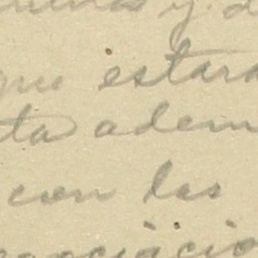 y d
que estara
ta adem
con las
egociacio